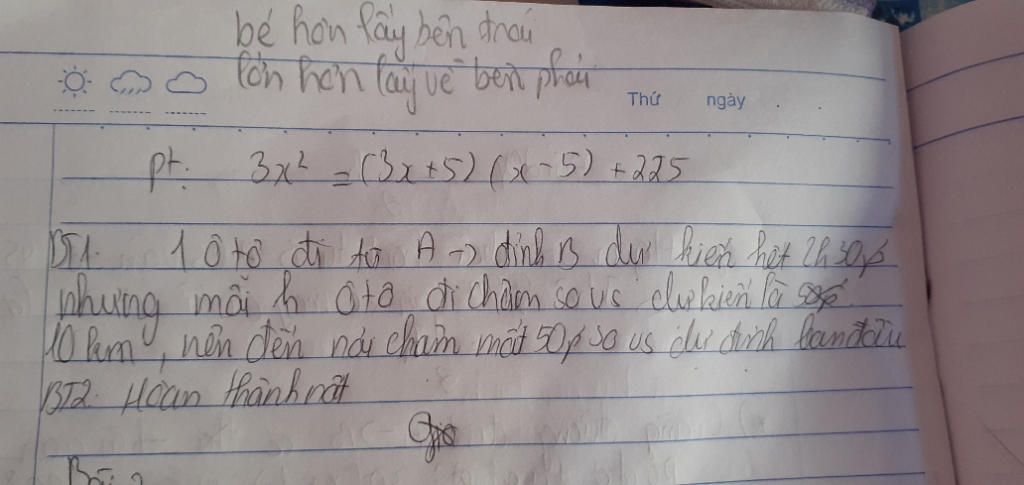 bé hơn lấy bên trái
lớn hơn lấy về bên phải
Thứ ngày
pt: 3x² = (3x+5) (x-5) +225
BT1. 1 Ô tô đi từ A → định B dự kiến hết 2h30p
nhưng mỗi h ô tô đi chậm so vs dự kiến là
10 km, nên đến nơi chậm mất 50p so vs dự định ban đầu
BT2. Hoàn thành nốt